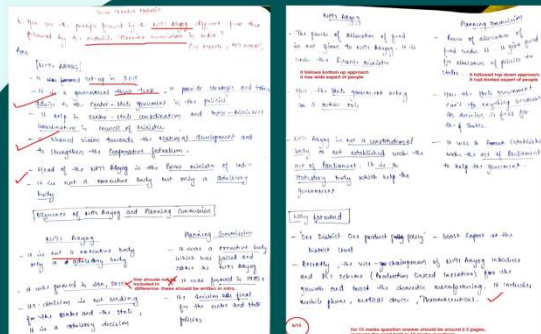 How are the principles followed by the NITI Aayog different from those
followed by the erstwhile Planning Commission in India?
Ans
NITI Aayog
- It was formed set-up in 2015
- It is a government think tank. It provide strategic and
advice to the center-state government in the policies
- It help in center-state coordination and inter-ministries
coordination & council of minister.
- shared vision towards the National development and
to strengthen the cooperative federalism.
- Head of the NITI Aayog is the Prime minister of India
- It is not a executive body but only a advisory
body
Difference of NITI Aayog and Planning Commission
NITI Aayog
- It is not a executive body
only a advisory body
- It was formed in
- Its decision is not binding
for the center and the state,
it is a advisory decision
Planning Commission
- It was a executive body
which was failed and
NITI Aayog
this should not be
included in
difference. these should be written in intro.
- It was formed in 1950
- Its decision was final
for the center and state
policies
NITI Aayog
- The power of allocation of fund
is not given to NITI Aayog. It is
under the finance minister
it follows bottom up approach
it has wide expert of people
- the state government acting
as a active role
- NITI Aayog is not a constitutional
body or not established under the
act of Parliament. It is a
statutory body which help the
government
Planning Commission
- Power of allocation of
fund under it. It gives fund
for allocation of policies to
states.
it followed top down approach.
it had limited expert of people
- the state government
can't do anything because
its decision is final for
the states.
- It was a
under the act of Parliament
to help the government.
Way forward
- 'One District One product policy' - boost Export at the
District level
- Recently, the vice-chairperson of NITI Aayog introduce
and PLI scheme (Production Linked Incentive) for the
growth and boost the domestic manufacturing. It includes
mobile phone, medical device, Pharmaceutical.
for 10 marks question answer should be around 2.5 pages.